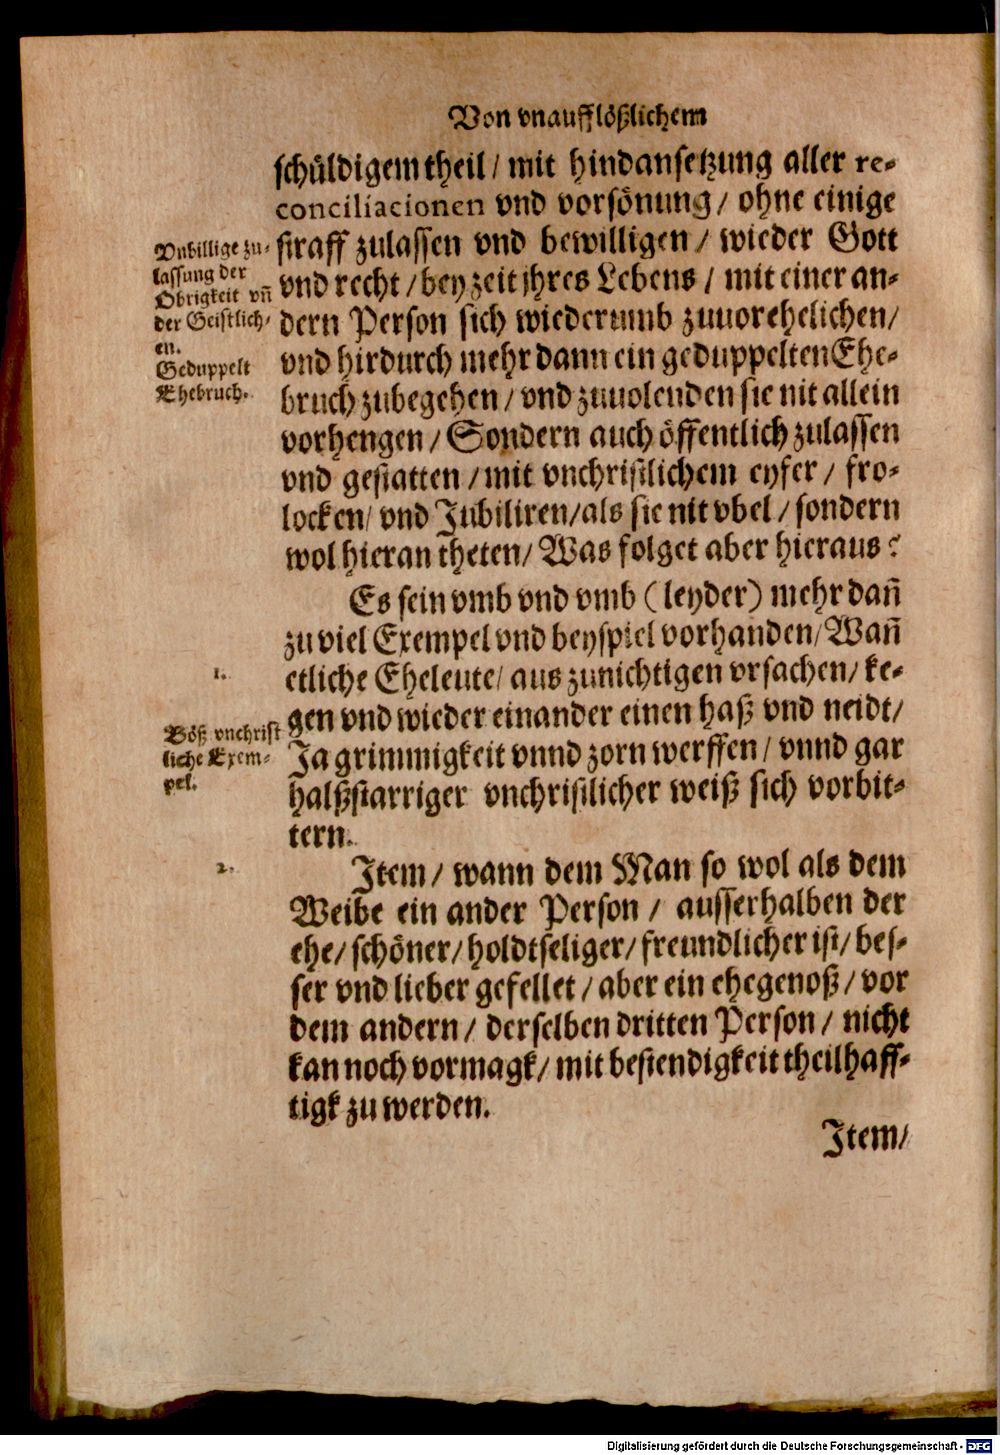 Von vnaufflößlichem
schüldigem theil / mit hindansetzung aller re-
conciliacionen vnd vorsönung / ohne einige
straff zulassen vnd bewilligen / wieder Gott
vnd recht / bey zeit jhres Lebens / mit einer an-
dern Person sich wiederumb zuuorehelichen /
vnd hirdurch mehr dann ein geduppelten Ehe-
bruch zubegehen / vnd zuuolenden sie nit allein
vorhengen / Sondern auch öffentlich zulassen
vnd gestatten / mit vnchristlichem eyfer / fro-
locken / vnd Jubiliren / als sie nit vbel / sondern
wol hieran theten / Was folget aber hieraus?
Vnbillige zu-
lassung der
Obrigkeit vñ
der Geistlich-
en.
Geduppelt
Ehebruch.
Es sein vmb vnd vmb (leyder) mehr dañ
zu viel Exempel vnd beyspiel vorhanden / Wañ
etliche Eheleute / aus zunichtigen vrsachen / ke-
gen vnd wieder einander einen haß vnd neidt /
Ja grimmigkeit vnnd zorn werffen / vnnd gar
halßstarriger vnchristlicher weiß sich vorbit-
tern.
1.
Böß vnchrist
liche Exem-
pel.
Item / wann dem Man so wol als dem
Weibe ein ander Person / ausserhalben der
ehe / schöner / holdtseliger / freundlicher ist / bes-
ser vnd lieber gefellet / aber ein ehegenoß / vor
dem andern / derselben dritten Person / nicht
kan noch vormagk / mit bestendigkeit theilhaff-
tigk zu werden.
2.
Item /
Digitalisierung gefördert durch die Deutsche Forschungsgemeinschaft - DFG